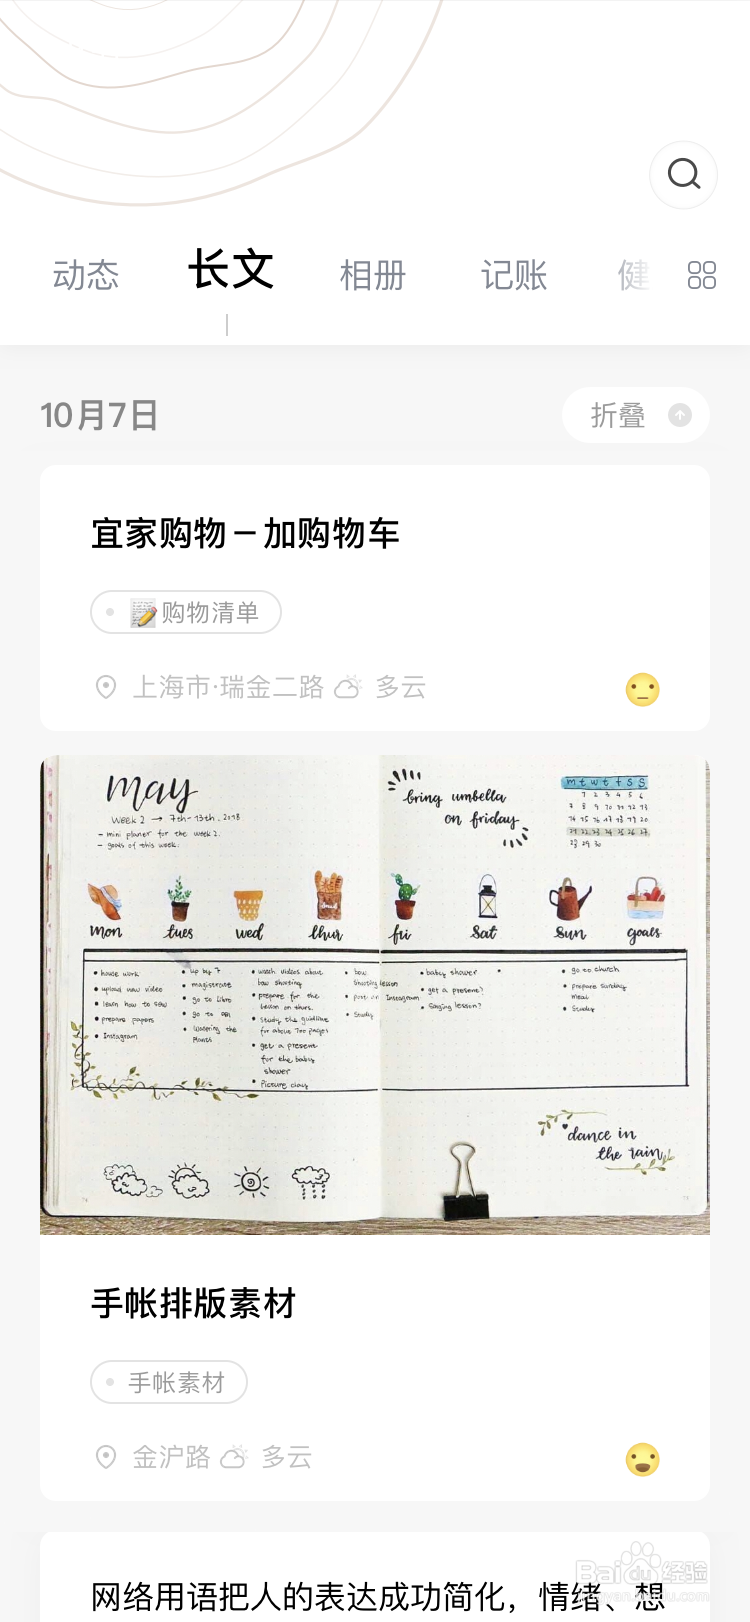 动态 长文 相册 记账 健
10月7日
折叠
宜家购物 – 加购物车
购物清单
上海市·瑞金二路 多云
may
Week 2 → 7th-13th, 2018
- mini planer for the week 2.
- goals of this week.
bring umbella
on friday
m t w t f s s
1 2 3 4 5 6
7 8 9 10 11 12 13
14 15 16 17 18 19 20
21 22 23 24 25 26 27
28 29 30
mon tues wed thur fri sat sun goals
house work
upload new video
learn how to sew
prepare papers
Instagram
up by 7
magistrate
go to libro
watering the
plants
watch videos about
bow shooting
prepare for the
lesson on thurs.
study the guidline
for about 700 pages
get a present
for the baby
shower
Picture clay
bow
shooting lesson
Instagram
Study
baby shower
get a present?
Singing lesson?
go to church
prepare sunday
meal
Study
dance in
the rain
手帐排版素材
手帐素材
金沪路 多云
网络用语把人的表达成功简化，情绪、想
Baidu经验